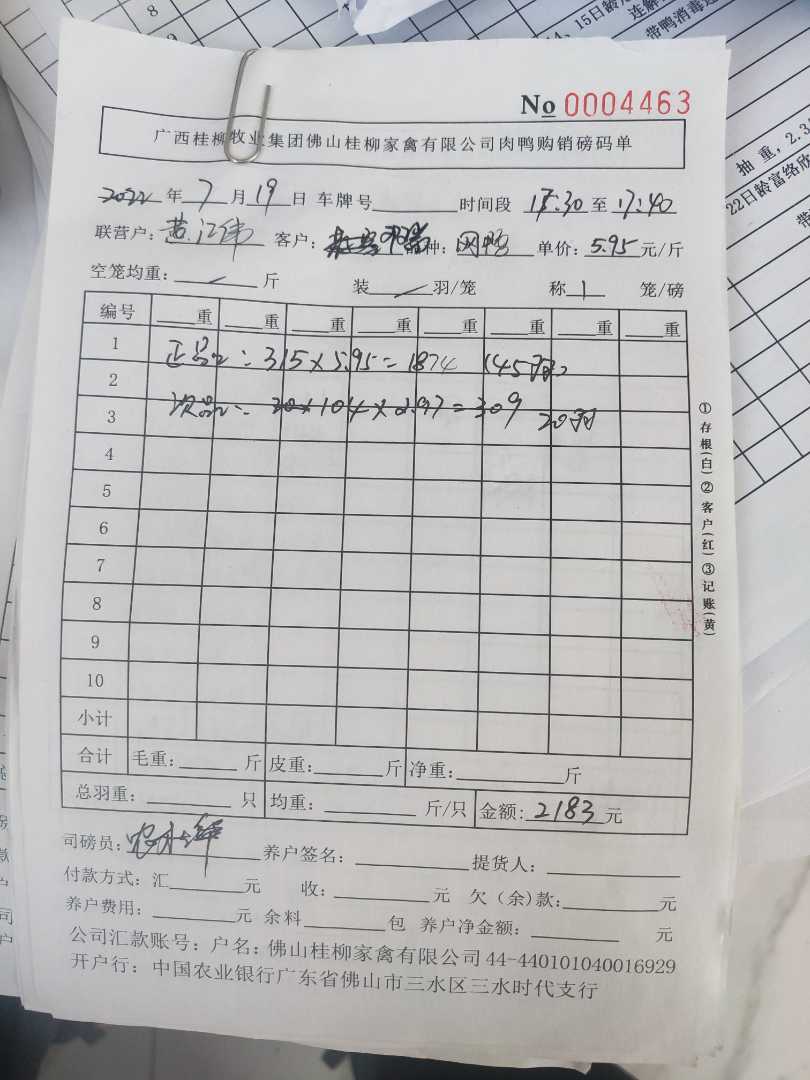 No 0004463
广西桂柳牧业集团佛山桂柳家禽有限公司肉鸭购销磅码单
2022年7月19日 车牌号 时间段 17:30至17:40
联营户:黄江伟 客户: 种: 单价:5.95元/斤
空笼均重: 斤 装 羽/笼 称1笼/磅
编号 重 重 重 重 重 重 重 重
1 正品: 315×5.95=1874 145羽
2
3 次品: 104×2.97=309 20羽
4
5
6
7
8
9
10
小计
合计 毛重: 斤 皮重: 斤 净重: 斤
总羽重: 只 均重: 斤/只 金额:2183元
司磅员: 养户签名: 提货人:
付款方式:汇 元 收: 元 欠(余)款: 元
养户费用: 元 余料 包 养户净金额: 元
公司汇款账号:户名:佛山桂柳家禽有限公司44-440101040016929
开户行:中国农业银行广东省佛山市三水区三水时代支行
①存根(白)②客户(红)③记账(黄)
8
9
14、15日龄
连解
带鸭消毒
抽重,2.3
22日龄富络欣